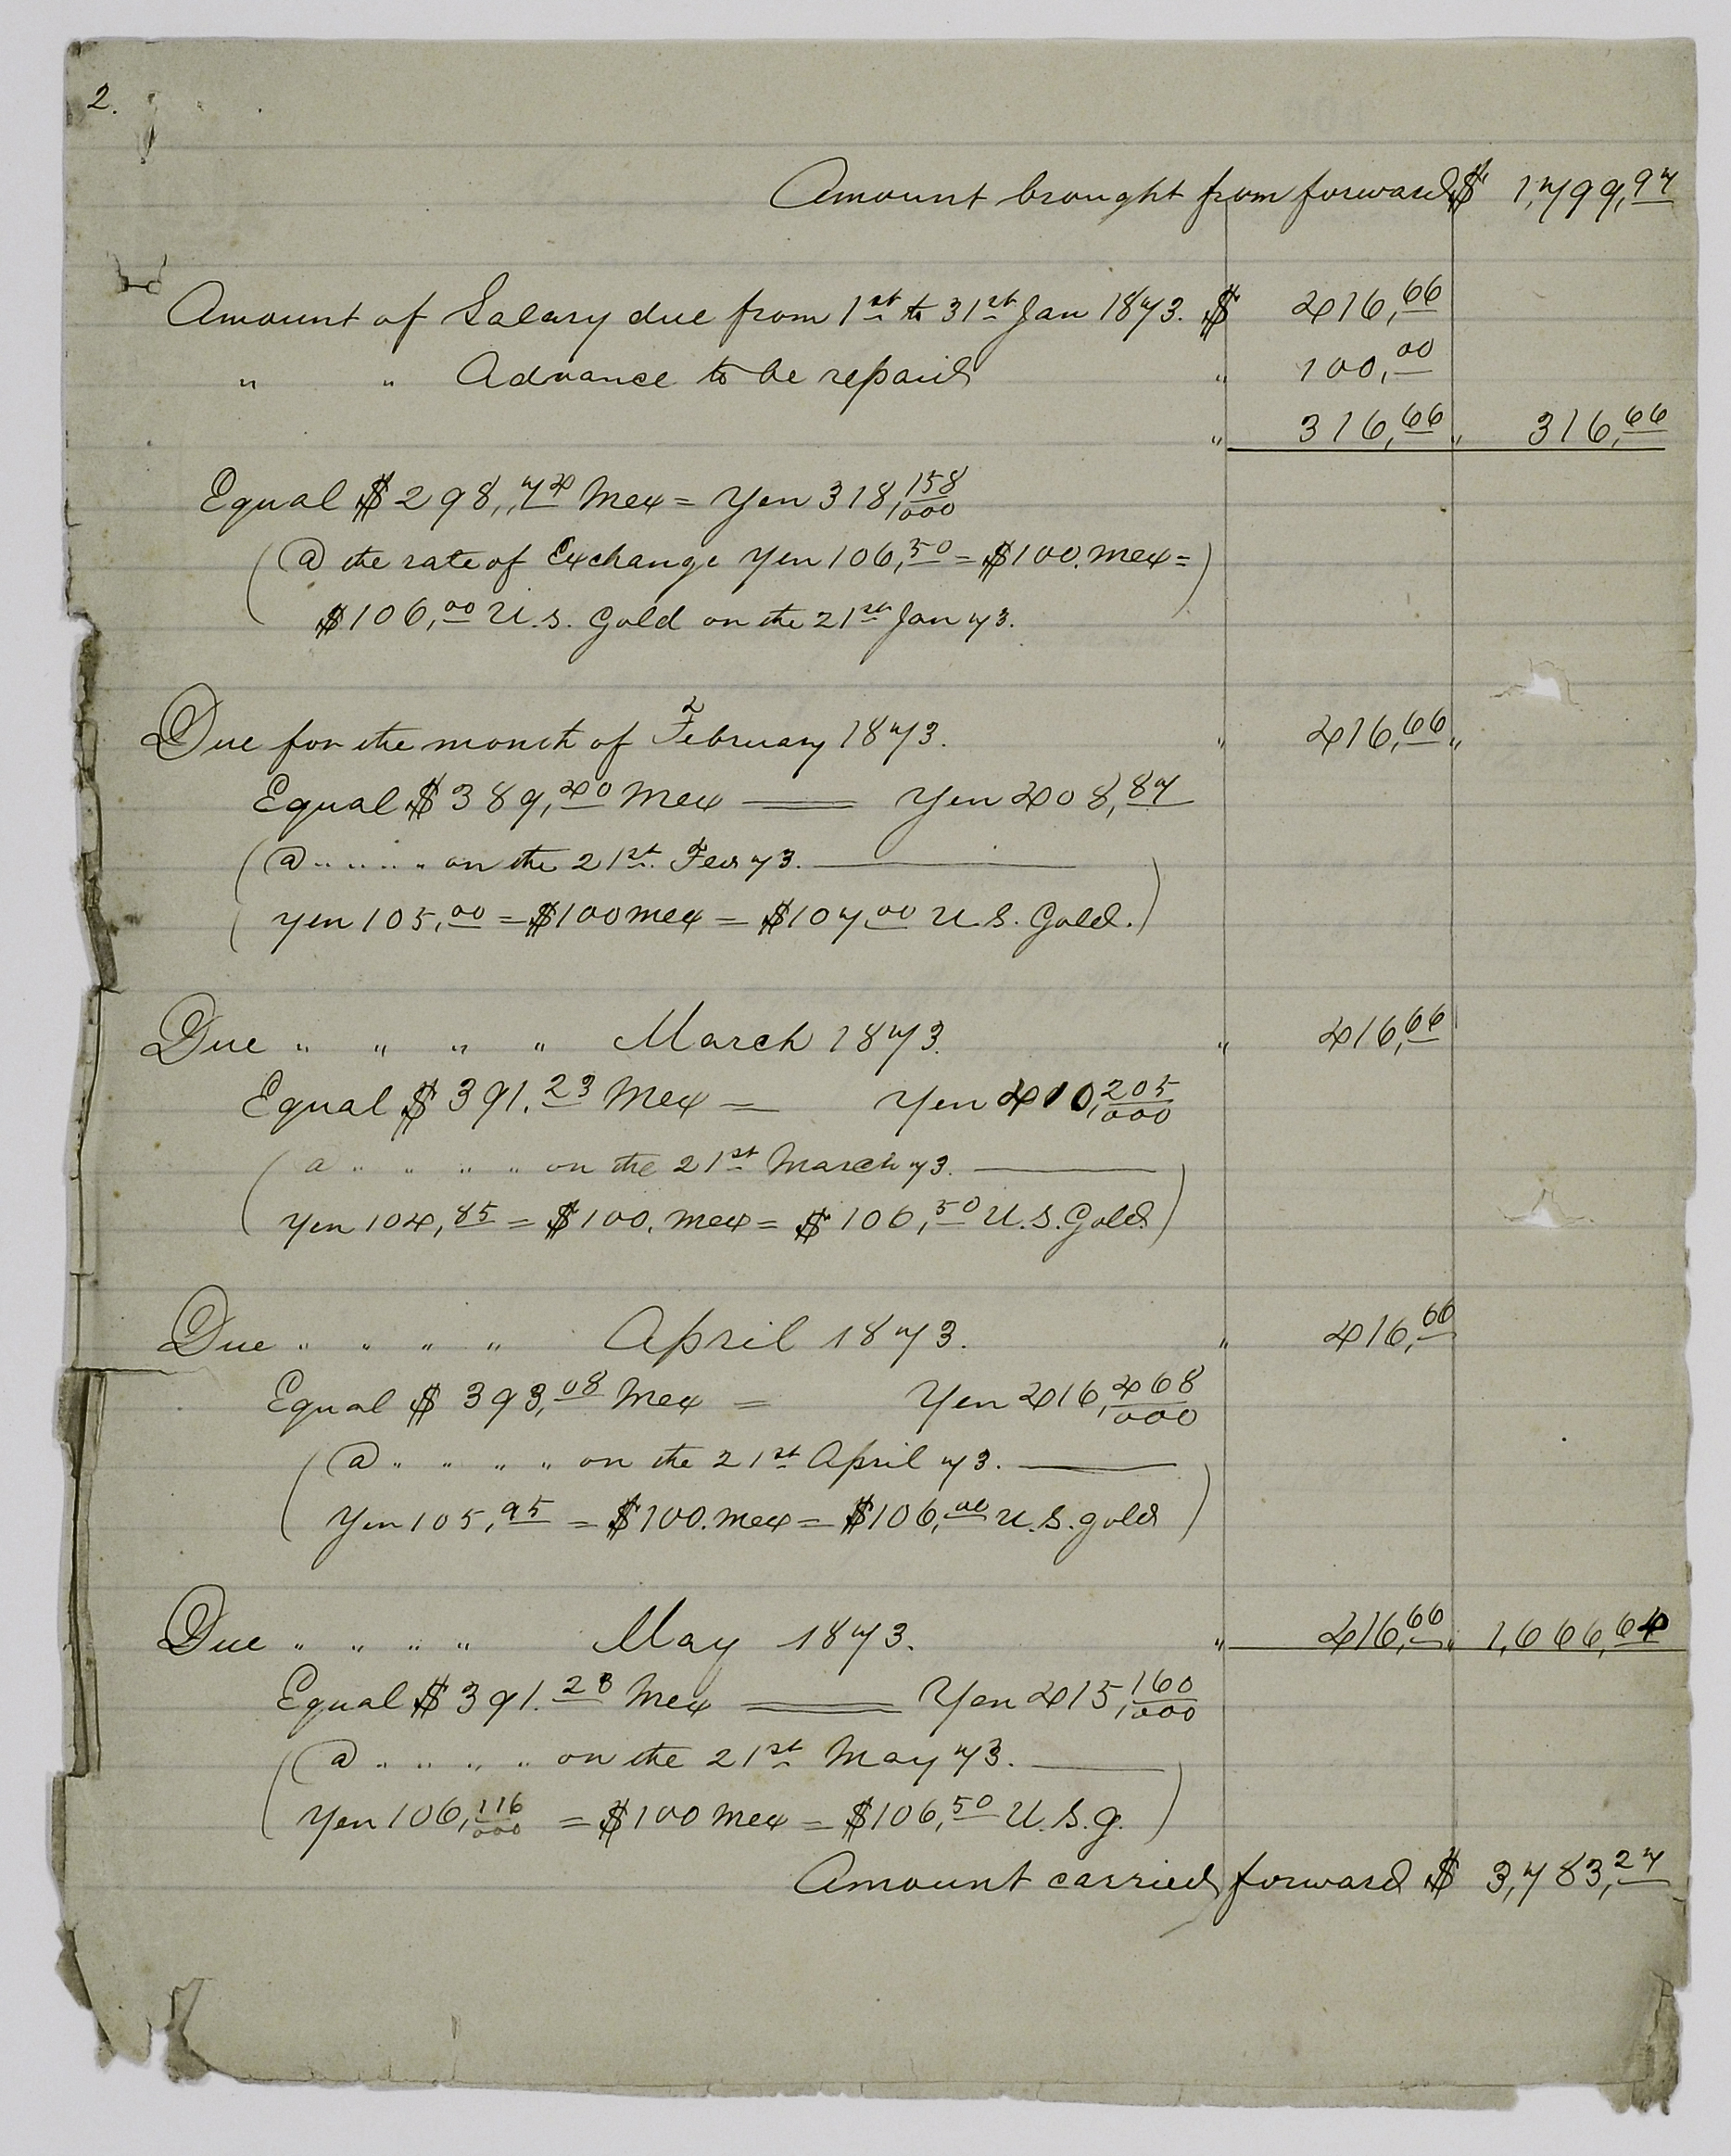 2.
Amount brought from forward $ 1,799,97
Amount of Salary due from 1st to 31st Jan 1873. $ 416,66
" " Advance to be repaid " 100,00
" 316,66 " 316,66
Equal $ 298,,74 Mex = Yen 318,158/000
(@ the rate of Exchange Yen 106,50 = $100. Mex =)
$106,00 U.S. Gold on the 21st Jan 73.
Due for the month of February 1873. " 416,66 "
Equal $ 389,40 Mex — Yen 408,87
(@ " " " " on the 21st Feb 73. —
Yen 105,00 = $100 Mex = $107,00 U.S. Gold.)
Due " " " " March 1873. " 416,66
Equal $ 391.23 Mex = Yen 410,205/000
(a " " " " on the 21st March 73. —
Yen 104,85 = $100. Mex = $106,50 U.S. Gold)
Due " " " " April 1873. " 416,66
Equal $ 393,08 Mex = Yen 416,468/000
(@ " " " " on the 21st April 73. —
Yen 105,95 = $100. Mex = $106,00 U.S. gold)
Due " " " " May 1873. " 416,66 " 1,666,64
Equal $ 391.23 Mex = Yen 415,160/000
(@ " " " " on the 21st May 73. —
Yen 106,116/000 = $100 Mex = $106,50 U.S.g.)
Amount carried forward $ 3,783,27